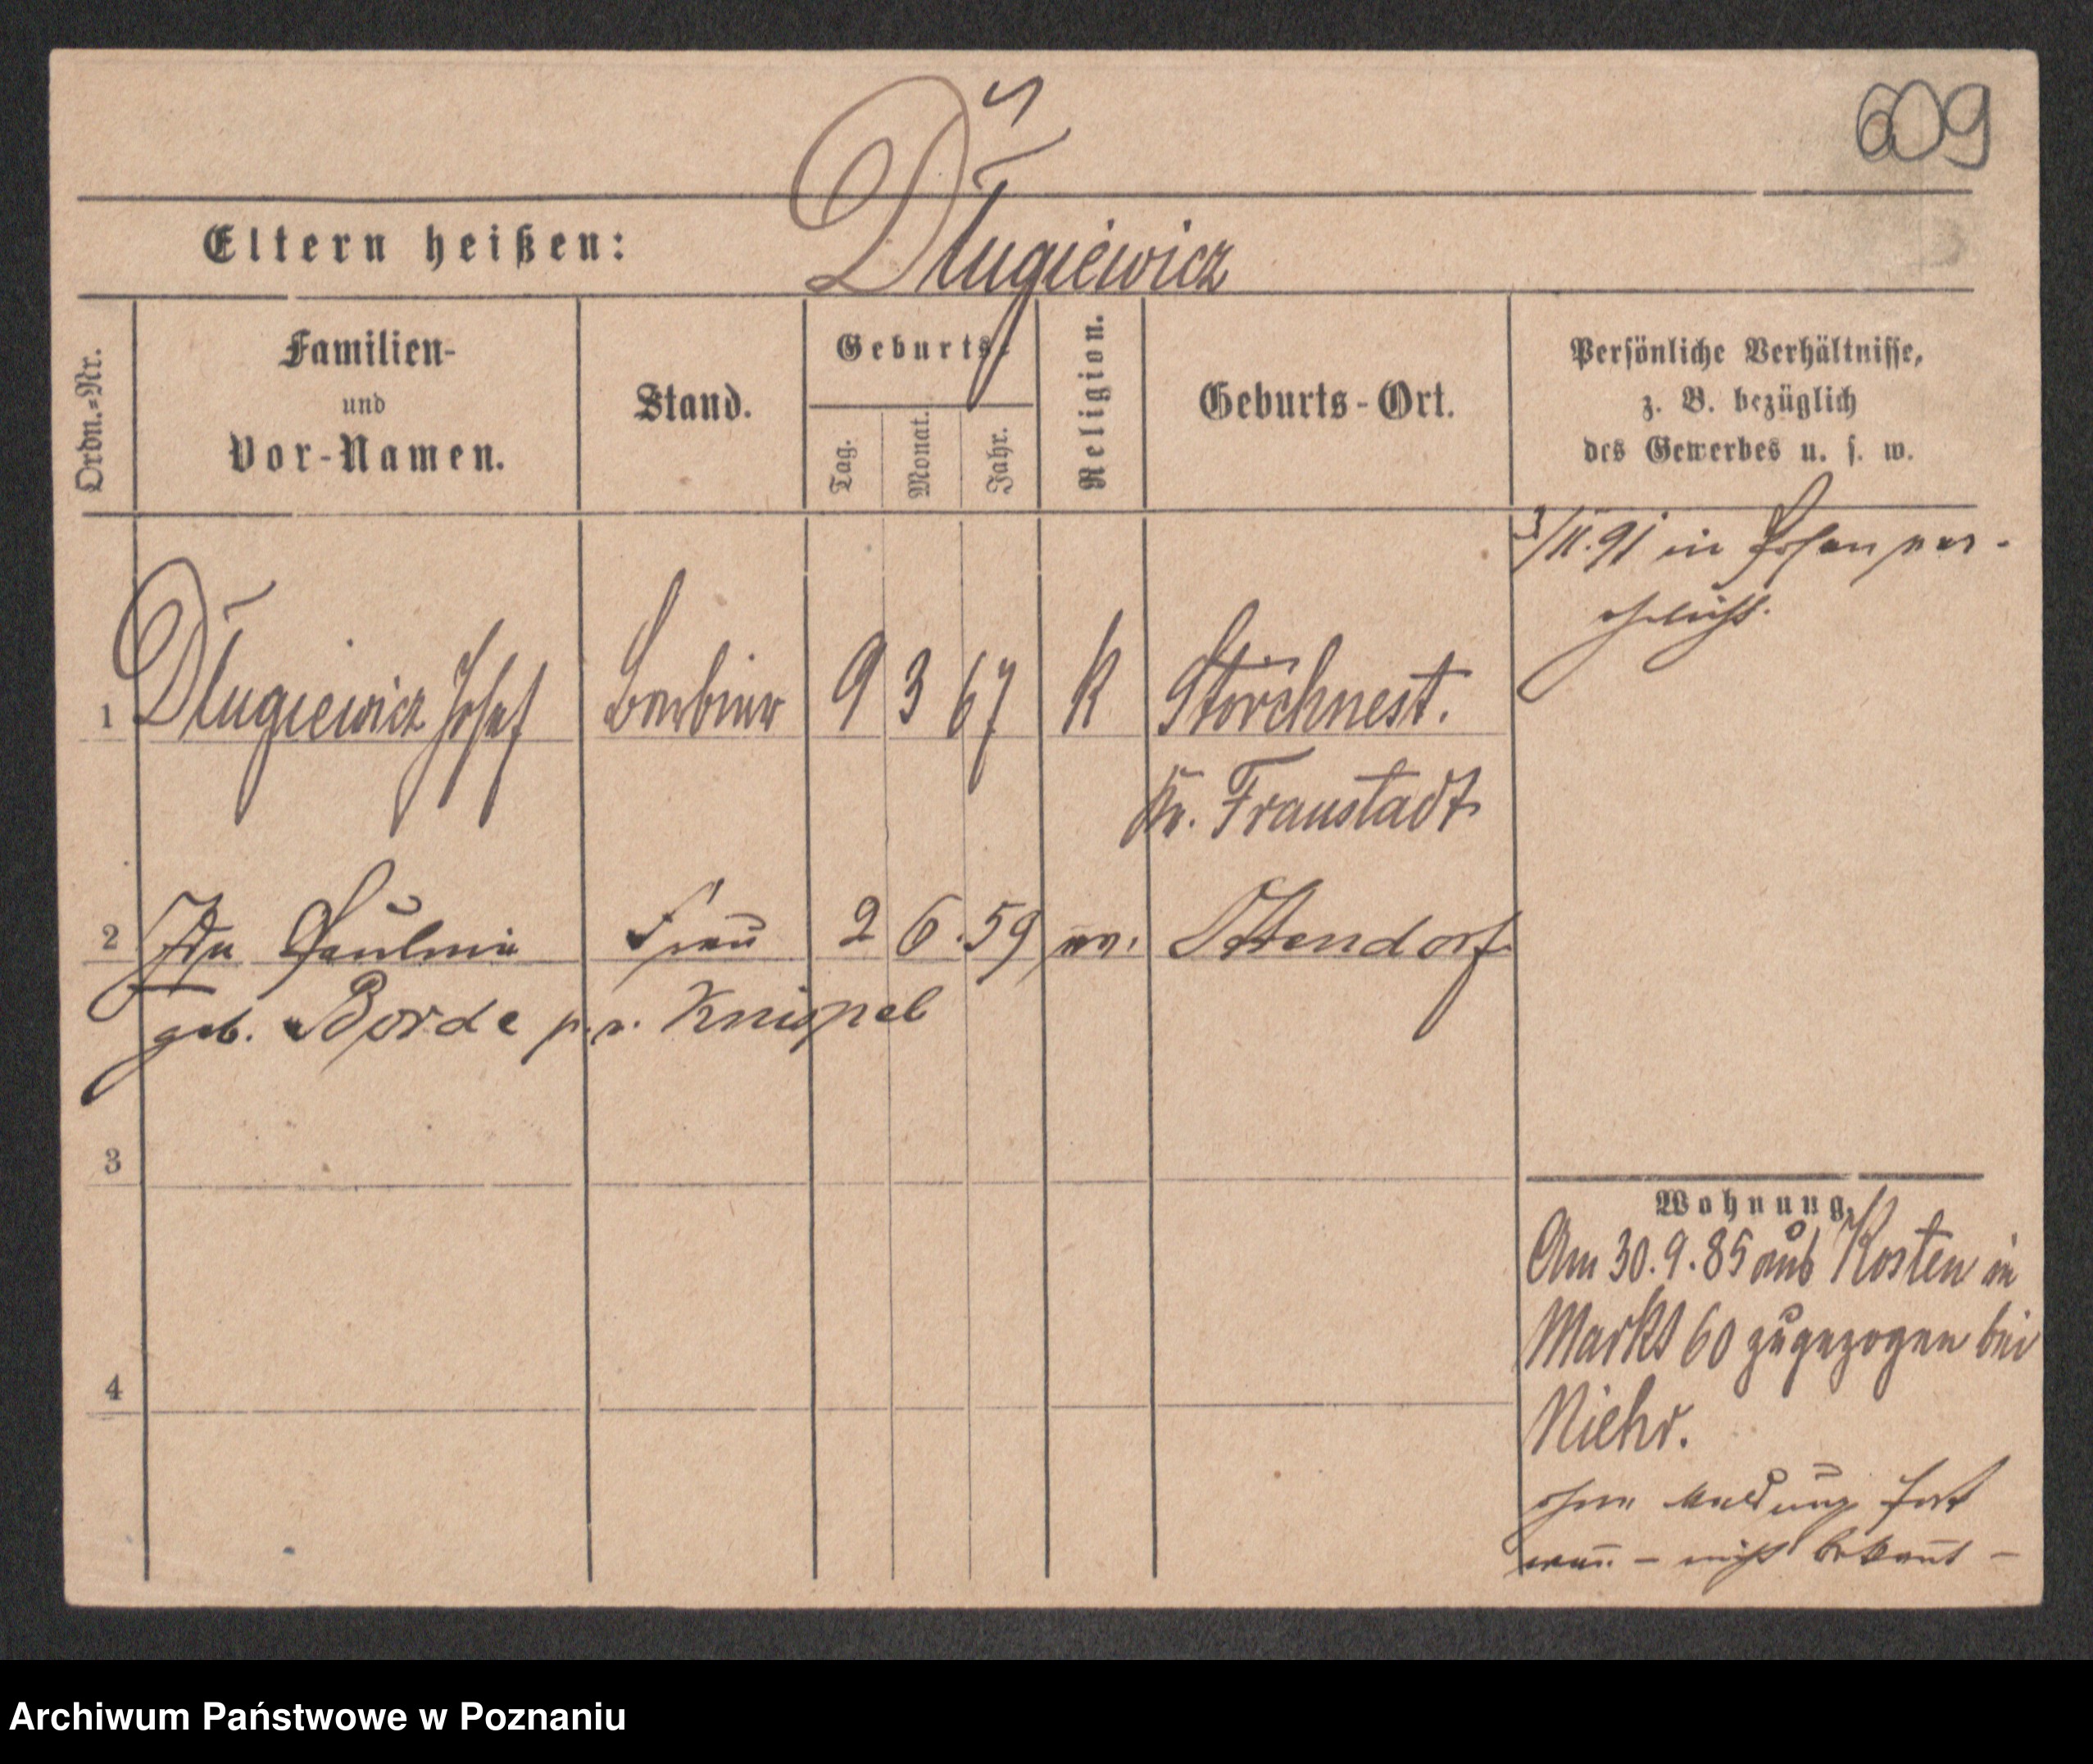 609
Eltern heißen:
Długiewicz
Ordn.=Nr.
Familien-
und
Vor-Namen.
Stand.
Geburts-
Tag.
Monat.
Jahr.
Religion.
Geburts-Ort.
Persönliche Verhältnisse,
z. B. bezüglich
des Gewerbes u. s. w.
3/11.91 in Posen ver-
ehelicht.
1 Długiewicz Josef Barbier 9 3 67 K Storchnest.
Kr. Fraustadt
2 Ida Paulina Frau 2 6. 59 ev. Ottendorf
geb. Borde p. v. Knispel
3
4
Wohnung.
Am 30.9.85 aus Kosten in
Markt 60 zugezogen bei
Niehr.
ohne Meldung fort
wann - nicht bekannt -
Archiwum Państwowe w Poznaniu